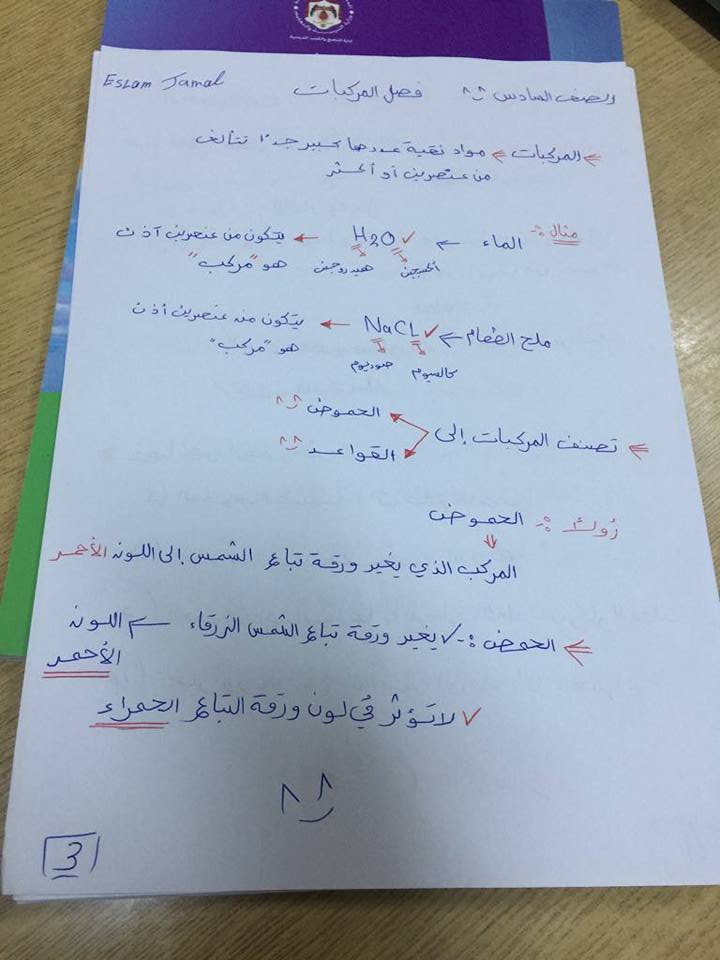 إدارة المناهج والكتب المدرسية
الصف السادس ^^ فصل المركبات Eslam Jamal
المركبات => مواد نقية عددها كبير جدًا تتألف
من عنصرين أو أكثر
مثال :- الماء ← H2O ✓ ← يتكون من عنصرين أذن
أكسجين هيدروجين هو "مركب"
ملح الطعام ← NaCL ✓ ← يتكون من عنصرين أذن
كالسيوم صوديوم هو "مركب"
تصنف المركبات إلى
الحموض ^^
القواعد ^^
أولًا :- الحموض
المركب الذي يغير ورقة تباع الشمس إلى اللون الأحمر
الحمض :- ✓ يغير ورقة تباع الشمس الزرقاء ← اللون
الأحمر
✓ لا تؤثر في لون ورقة التباع الحمراء
3